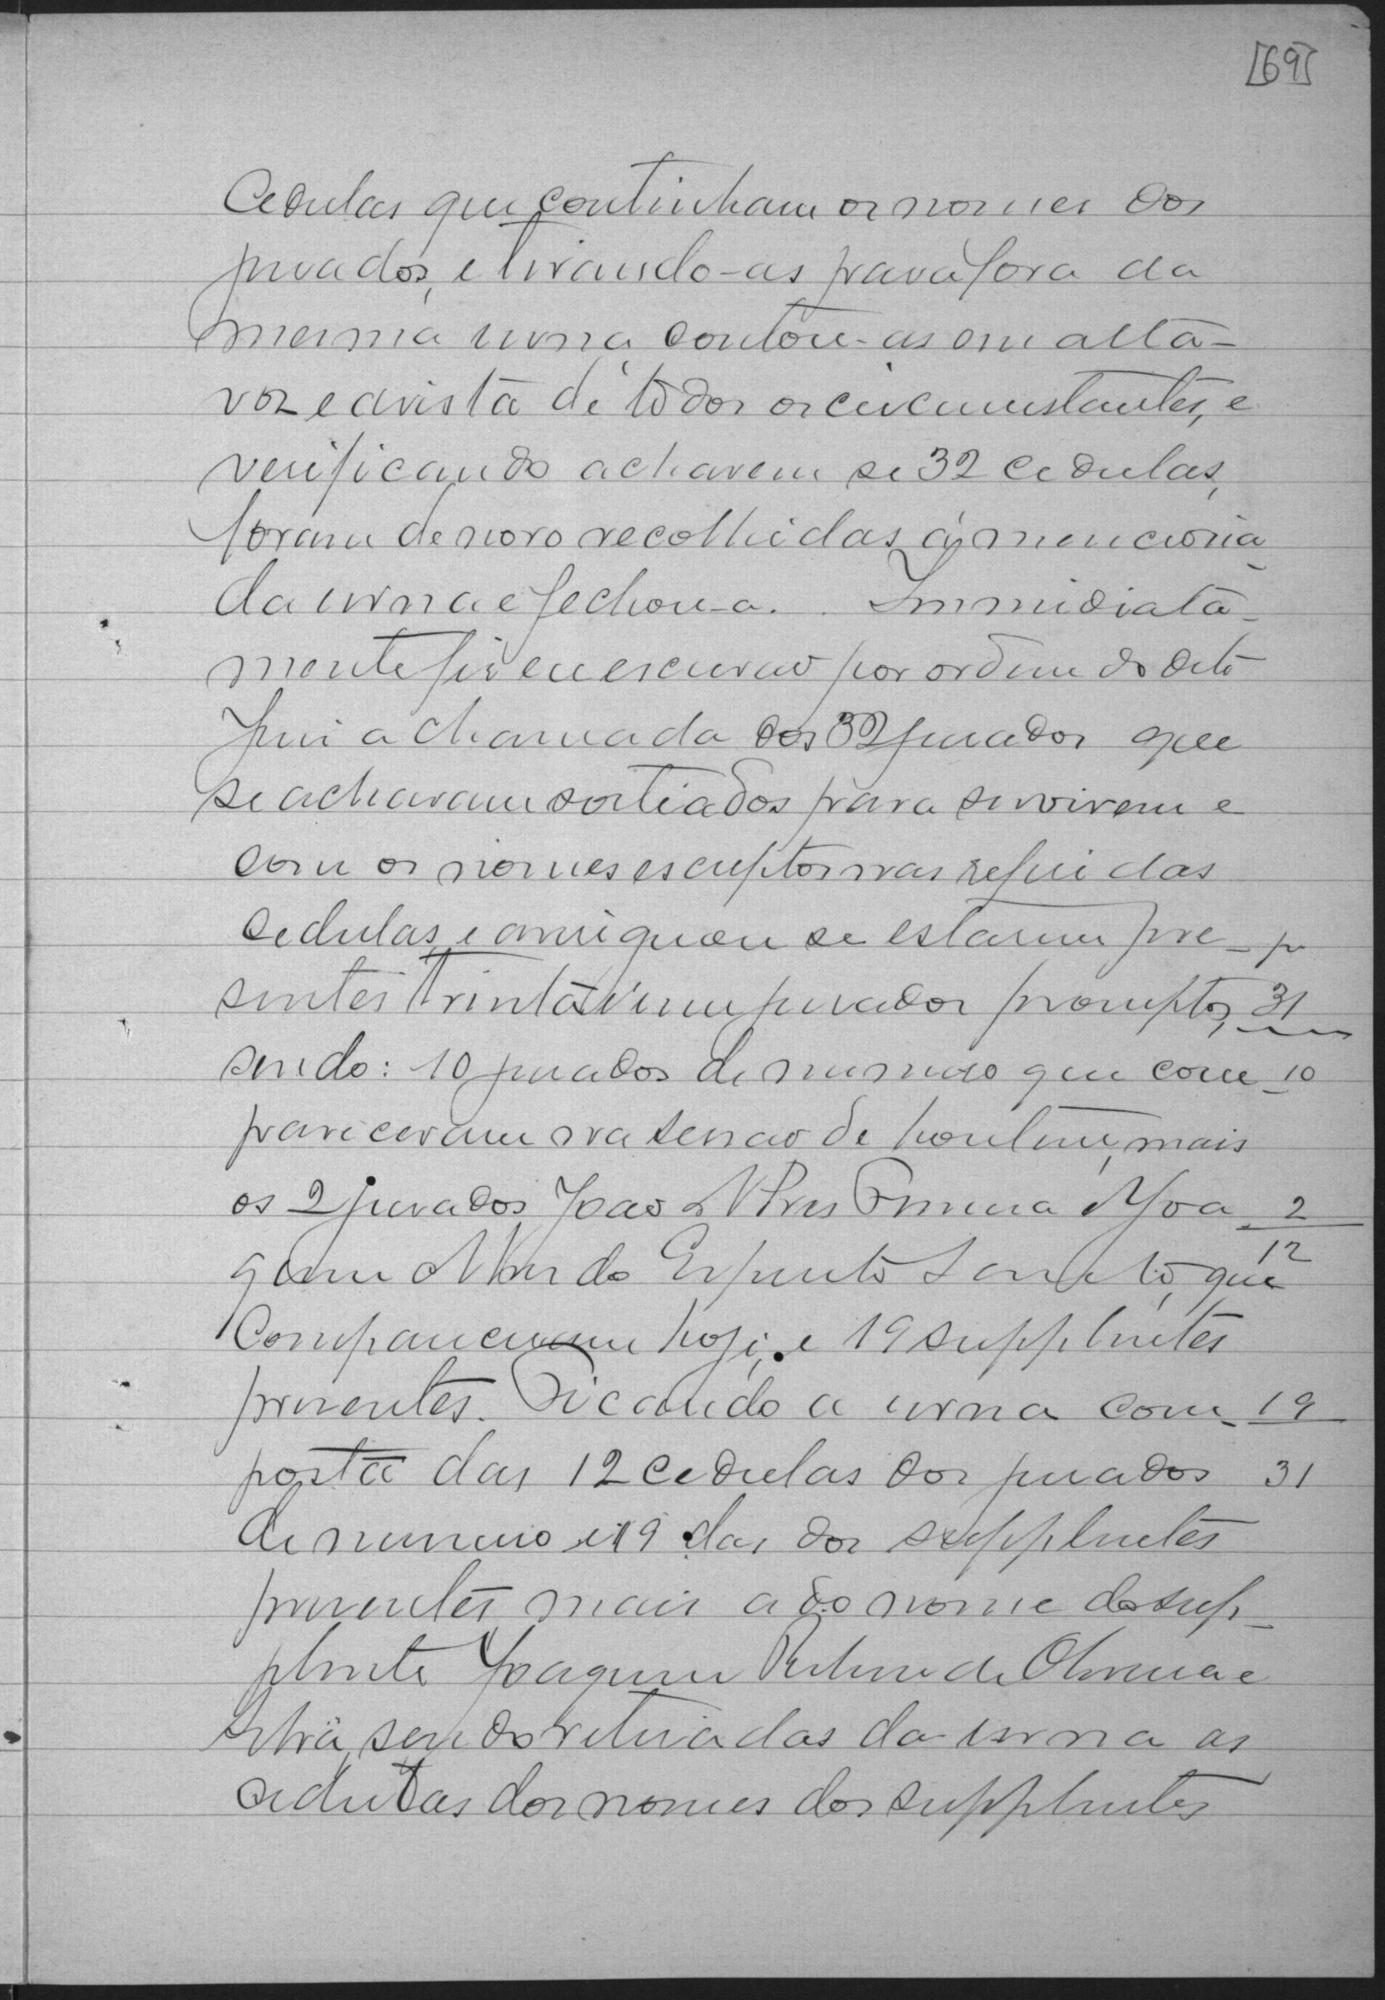 [69]
Cedulas que continham os nomes dos
jurados, e tirando-as para fora da
mesma urna, contou-as em alta-
voz e a vista de todos os circumstantes, e
verificando acharem se 32 cedulas,
foram de novo recolhidas á menciona-
da urna e fechou-a. Immidiata-
mente fiz eu escrivão por ordem do dito
Juiz a chamada dos 32 jurados que
se acharam sortiados para servirem e
com os nomes escriptos nas referidas
cedulas, e averiguou se estarem pre-
sentes trinta e um jurados promptos, 31
sendo: 10 jurados de numero que com- 10
pareceram na sessão de hontem, mais
os 2 jurados João Pires Ferreira & Joa- 2
quim do Espirito Santo, que 12
Compareceram hoje, e 19 supplentes
presentes. Ficando a urna com- 19
posta das 12 cedulas dos jurados 31
de numero e 19 das dos supplentes
presentes mais a do nome do sup-
plente Joaquim de Oliveira e
sendo retiradas da urna as
cedulas dos nomes dos supplentes